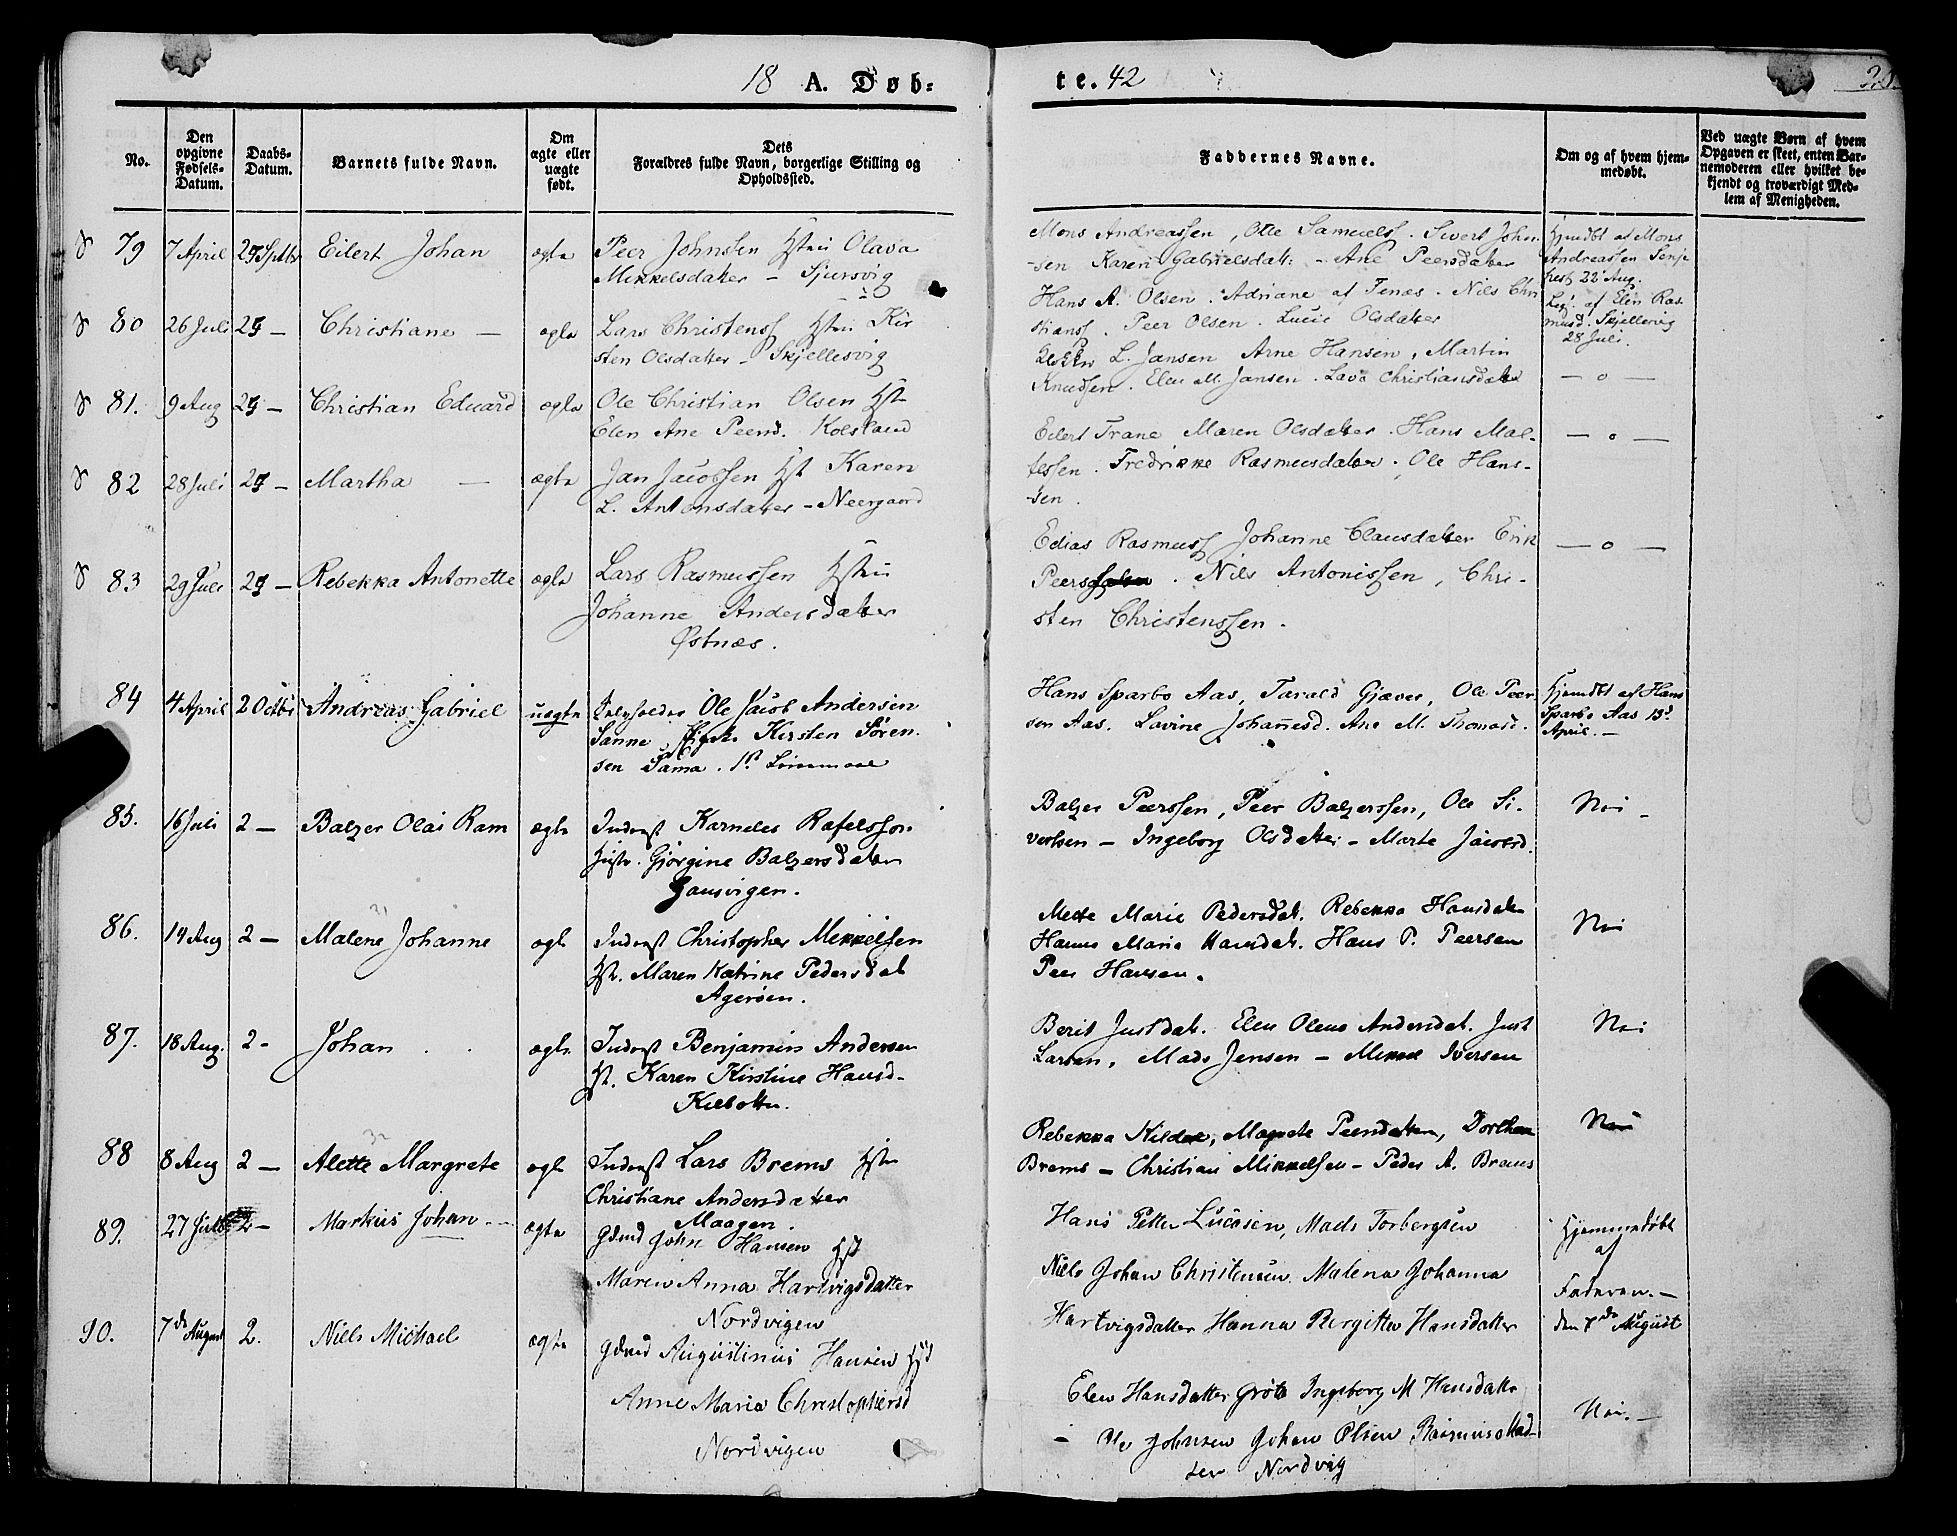 18 A. Døb-
te. 42
No.
Den opgivne Fødsels-Datum.
Daabs-Datum.
Barnets fulde Navn.
Om ægte eller uægte født.
Dets Forældres fulde Navn, borgerlige Stilling og Opholdssted.
Faddernes Navne.
Om og af hvem hjem-medøbt.
Ved uægte Børn af hvem Opgaven er skeet, enten Bar-nemoderen eller hvilket be-kjendt og troværdigt Med-lem af Menigheden.
79 7 April 29 Septbr Eilert Johan ægte
Peer Johnsen Hstru Olava
Mikkelsdatter - Sjursvig
Mons Andreassen, Otte Samuels. Sivert John-
sen Karen Gabrielsdat. - Ane Peersdatter
Hjemdbt af Mons
Andreassen
22 Aug.
80 26 Juli 29 - Christiane - ægte
Lars Christenss Hstru Kir
sten Olsdatter - Skjellesvig
Hans A. Olsen. Adriane af Tenas. Nils Chri
stianss. Peer Olsen. Lucie Olsdatter
af Elen Ras
musd. Skjellesvig
28 Juli.
81. 9 Aug 29 - Christian Eduard ægte
Ole Christian Olsen Hst
Elen Ane Peersd. Kolsland
L. Jansen Arne Hansen, Martin
Knudsen. Elen M. Jansen. Lava Christiansdatter
- o -
82 28 Juli 29 - Martha - ægte
Jan Jacobsen Hst Karen
L. Antonsdatter - Neergaard
Eilert Trane Maren Olsdatter. Hans Mal-
tessen. Fredrikke Rasmusdatter. Ole Hans-
sen.
- o -
83 29 Juli 29 - Rebekka Antonette ægte
Lars Rasmussen Hstru
Johanne Andersdatter
Østnæs.
Edias Rasmuss Johanne Clausdatter Erik
Peers. Nils Antonissen, Chri-
sten Christenssen.
- o -
84 4 April 2 Octbr Andreas Gabriel uægte
Ole Jacob Andersen
Sanne Kirsten Søren
sen
Hans Sparbo Aas, Tarald Gjæver, Ole Peer
sen Aas. Lavine Johannesd. Ane M. Thomasd.
Hjemdbt af Hans
Sparbo Aas 13d
April. -
85. 16 Juli 2 - Balzer Olai Ram ægte
Inderst Karneles Rafelsson
Hustr. Gjørgine Balzersdatter
Gausvigen.
Balzer Peerssen, Peer Balzerssen, Ole Si-
vertsen - Ingeborg Olsdatter - Marte Jacobsd.
Nei -
86. 14 Aug 2 - Malene Johanne ægte
Inderst Christopher Mikkelsen
Hst. Maren Katrine Pedersdat
Agerøen.
Mette Marie Pedersdat. Rebekka Hansdatt
Hanna Maria Hansdat. Hans P. Peersen
Peer Hansen.
Nei
87. 18 Aug. 2 - Johan . . ægte
Inderst Benjamin Andersen
Hst. Karen Kirstine Hansd-
Kilbotten.
Berit Justdat. Elen Olena Andersdat. Just
Larsen, Mads Jensen - Mikkel Iversen
Nei
88 8 Aug 2 - Alette Margrete ægte
Inderst Lars Brems Hstr
Christiane Andersdatter
Maagen.
Rebekka Nilsdat, Magrete Peersdatter, Dorthea
Brems - Christian Mikkelsen - Peder A. Brems
Nei
89. 27 Juli 2 - Markus Johan - ægte
Gdmd John Hansen Hst
Maren Anna Hartvigsdatter
Nordvigen
Hans Petter Lucasen, Mads Torbergsen
Niels Johan Christensen. Malena Johanna
Hartvigsdatter Hanna Birgitta Hansdatter
Hjemmedøbt
af
Faderen. -
den 7de August
90. 7de August 2. Niels Michael ægte
Gdmd Augustinus Hansen Hst
Anne Maria Christophersd
Nordvigen
Elen Hansdatter Grøtø Ingeborg M Hansdatter
- Ole Johnsen Johan Olsen Rasmus Mad-
sen Nordvig
Nei. -